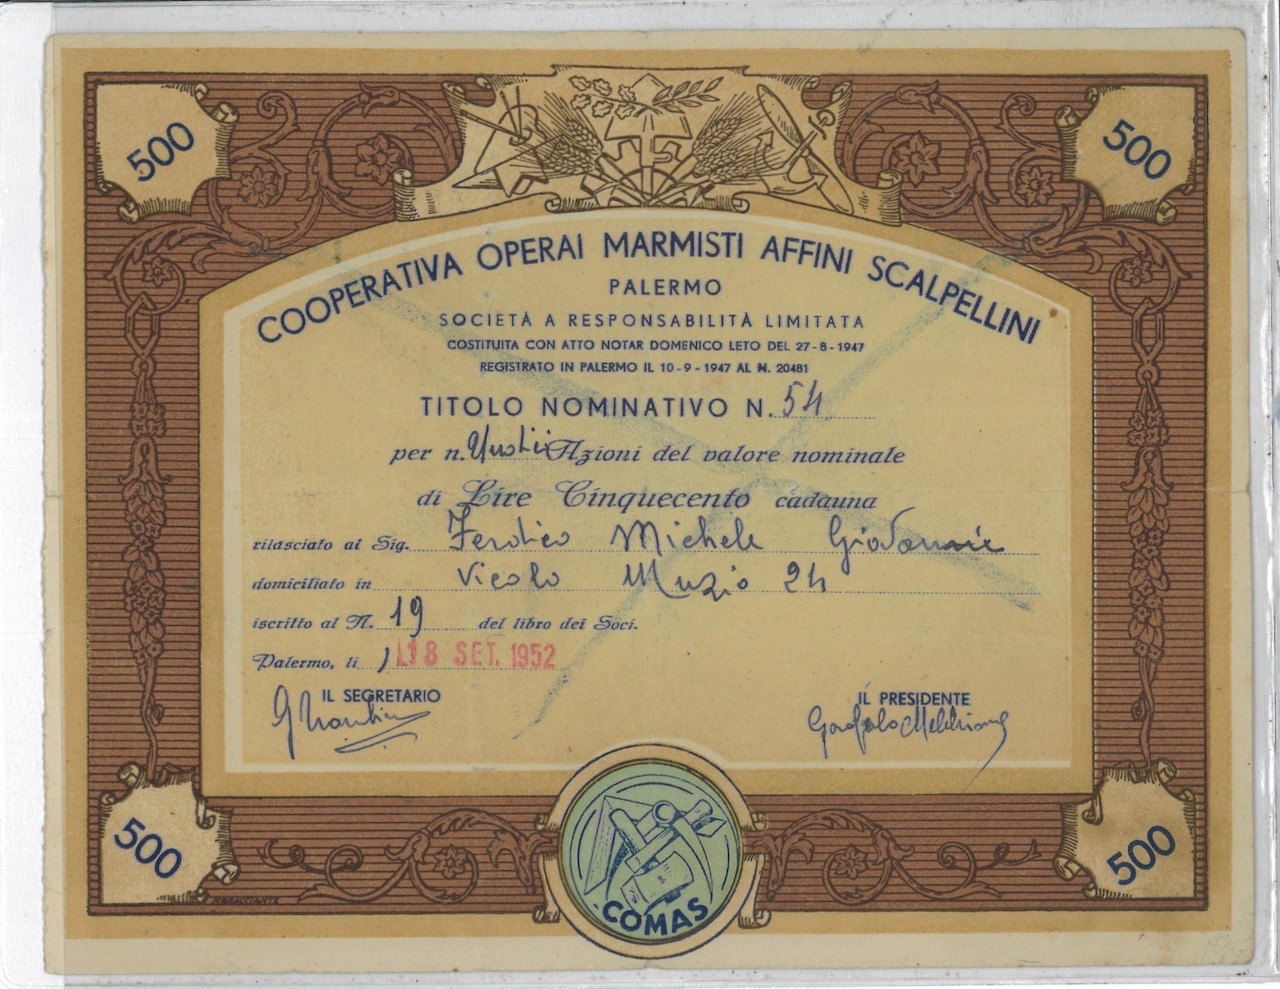 500
500
COOPERATIVA OPERAI MARMISTI AFFINI SCALPELLINI
PALERMO
SOCIETÀ A RESPONSABILITÀ LIMITATA
COSTITUITA CON ATTO NOTAR DOMENICO LETO DEL 27-8-1947
REGISTRATO IN PALERMO IL 10-9-1947 AL N. 20481
TITOLO NOMINATIVO N. 54
per n. Azioni del valore nominale
di Lire Cinquecento cadauna
rilasciato al Sig. Michele Giovanni
domiciliato in Vicolo Muzio 24
iscritto al N. 19 del libro dei Soci.
Palermo, li 18 SET. 1952
IL SEGRETARIO
IL PRESIDENTE
500
500
COMAS